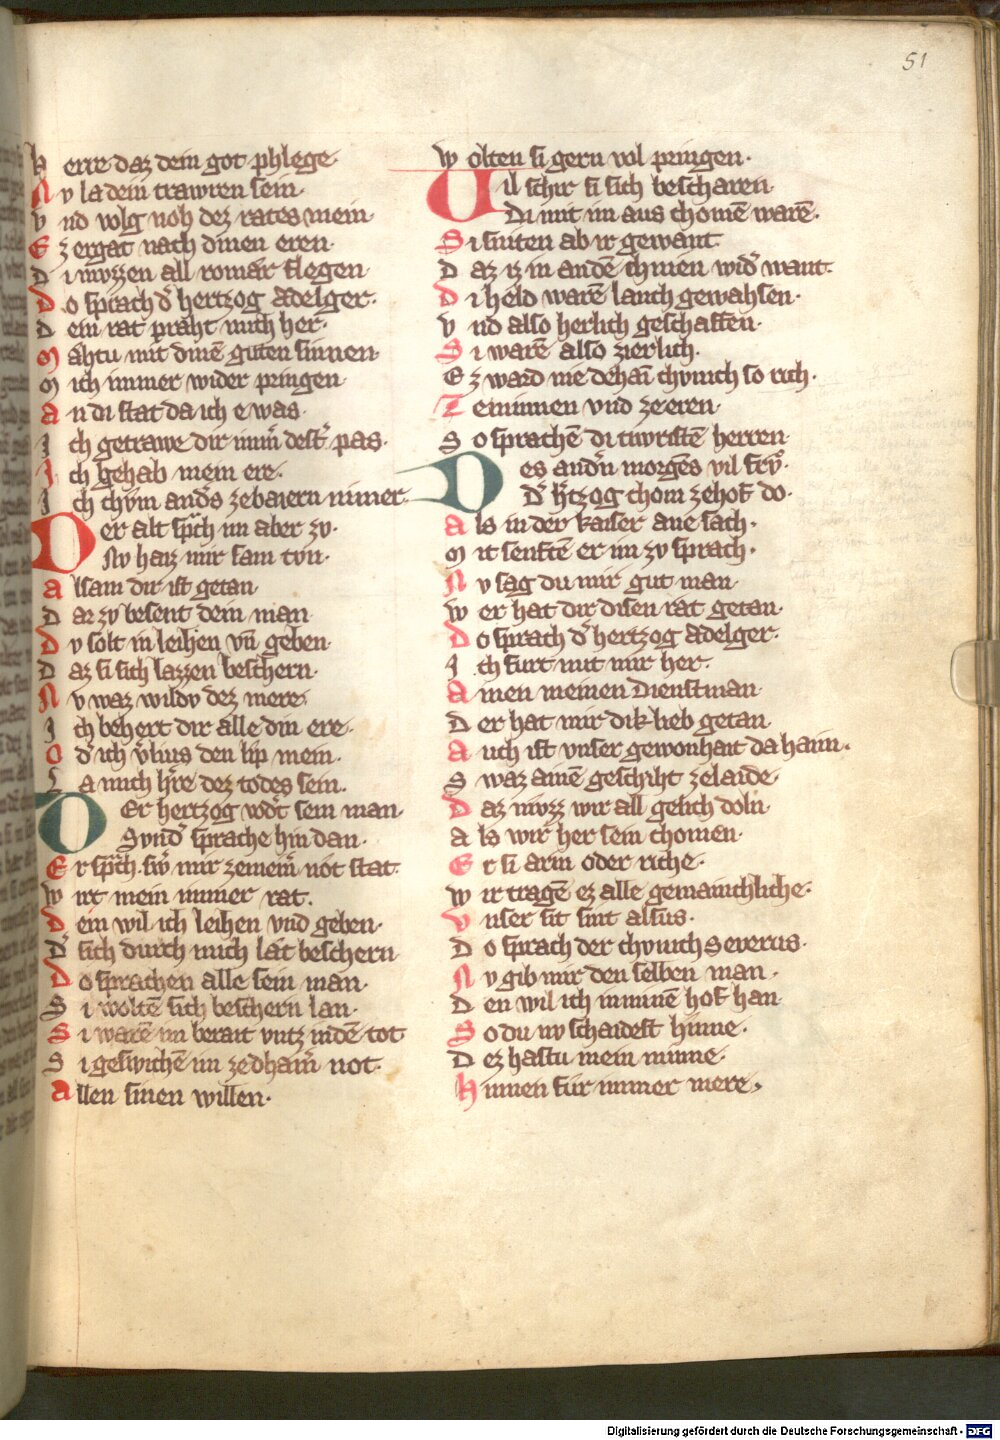 51
H erre daz dein got phlege·
N v la dein trawren sein·
V nd volg noh dez rates mein·
E z ergat nach dinen eren·
D i mvzzen all romær flegen
D o sprach d͛ hertzog Adelger·
D ein rat praht mich her·
M ahtu mit dinē guten sinnen
M ich immer wider pringen
A n di stat da ich e was·
I ch getrawe dir imm͛ dest͛ pas·
I ch gehab mein ere·
I ch chvm and͛s ze baiern nimer·
Der alt sp̃ch im aber zv·
Nv haiz mir sam tvn·
A lsam dir ist getan
D ar zv besent dein man
D v solt in leihen vn̄ geben·
D az si sich lazzen beschern·
N v waz wildv dez mere
I ch behert dir alle din ere·
O d͛ ich v͛lius den lip mein·
L a mich h͛re dez todes sein·
Der hertzog vod͛t sein man·
Svnd͛ sprache hin dan·
E r sp̃ch· sw͛ mir zemein͛ not stat·
W irt mein nimer rat·
D em wil ich leihen vnd geben·
D͛ sich durch mich lat beschern
D o sprachen alle sein man·
S i woltē sich beschern lan·
S i warē im berait vntz in dē tot
S i geswichē im ze dhain͛ not·
A llen sinen willen·
W olten si gern vol pringen·
Vil schir si sich bescharen
Di mit im aus chomē warē·
S i sniten ab ir gewant
D az iz in andē chnien wid͛ want·
D i held warē lanch gewahsen·
V nd also herlich geschaffen·
S i warē also zierlich·
E z ward nie dehaī chvnich so rich·
Z e minnen vnd ze eren·
S o sprachē di tiwristē herren
Des and͛n morgēs vil frv·
D͛ h͛tzog chom ze hof do·
A ls in der kaiser ane sach·
M it senftē er im zv sprach·
N v sag du mir gut man
W er hat dir disen rat getan·
D o sprach d͛ hertzog Adelger·
I ch furt mit mir her·
A inen meinen dienstman
D er hat mir dik lieb getan·
A uch ist vnser gewonhait da haim·
S waz ainē geschiht ze laide
D az mvzz wir all gelich doln·
A ls wir her sein chomen·
E r si arm oder riche·
W ir tragē ez alle gemainchliche·
V nser sit sint alsus·
D o sprach der chvnich Severus·
N v gib mir den selben man·
D en wil ich in minē hof han
S o du nv schaidest hinne·
D ez hastu mein minne·
H innen fur immer mere·
Digitalisierung gefördert durch die Deutsche Forschungsgemeinschaft - DFG